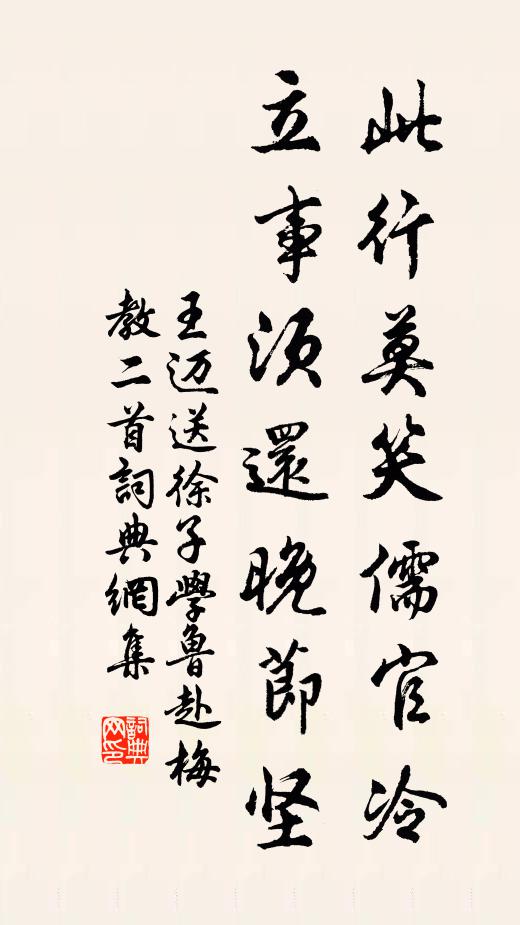 此行莫笑儒官冷
立事须還晚節坚
王迈送徐子學魯赴梅
教二首詞典網集
詞典网印